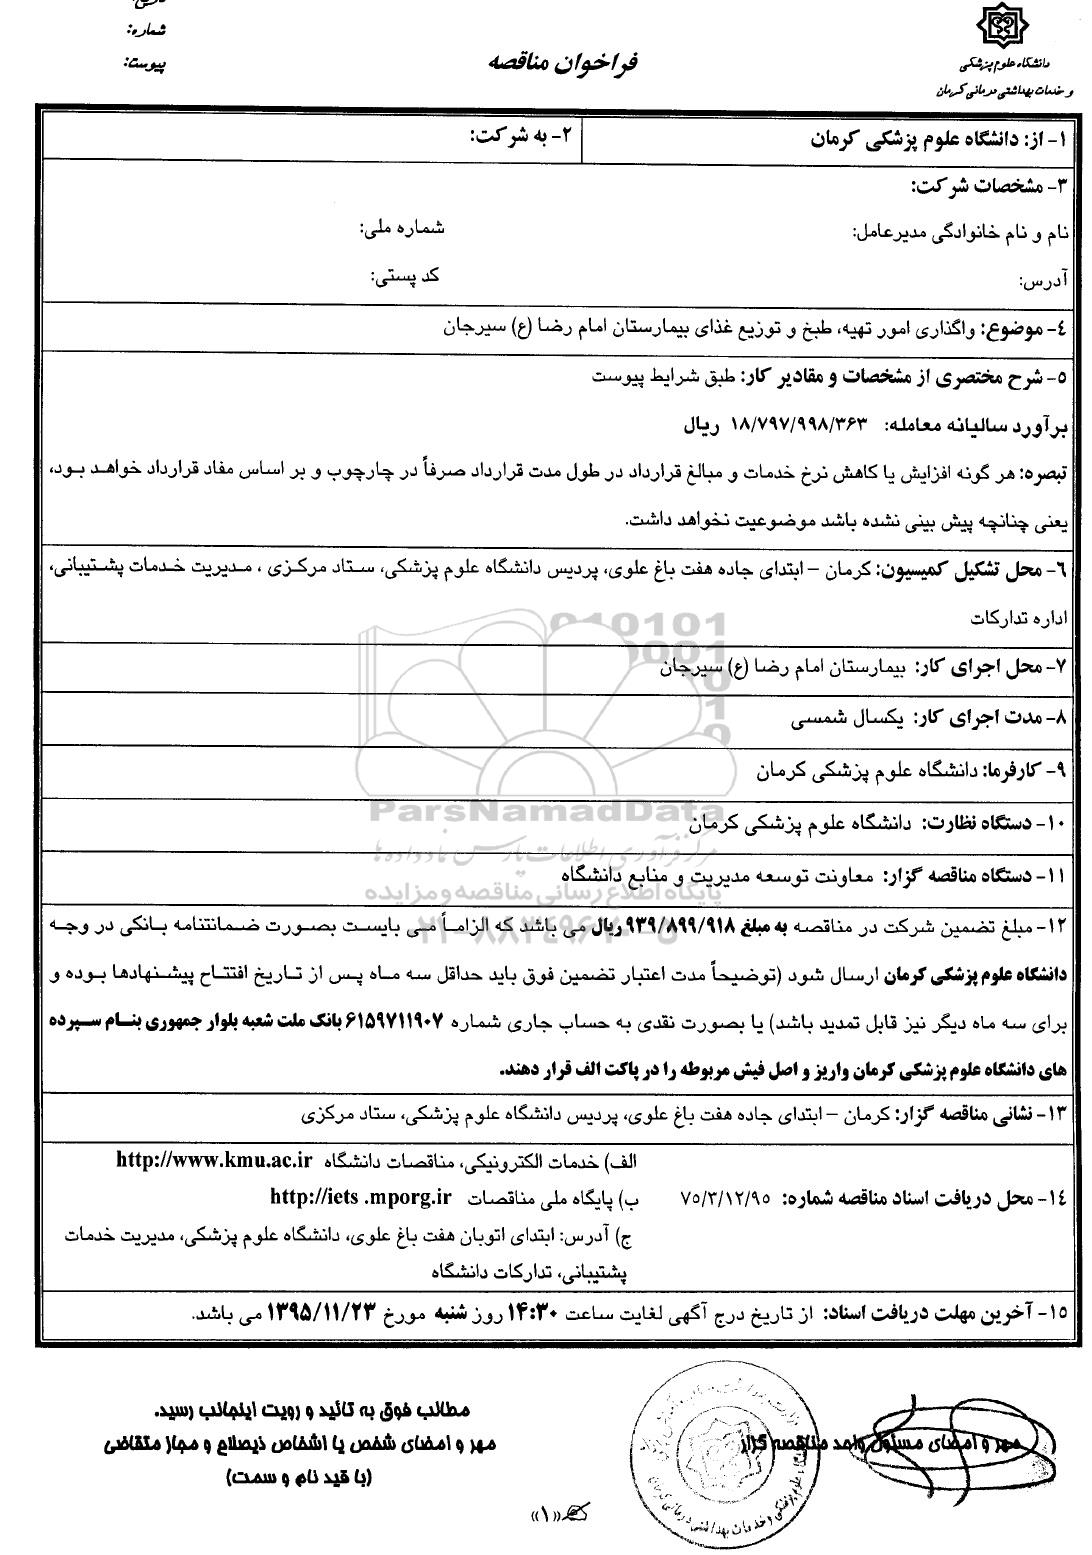 شماره:
پیوست:
فراخوان مناقصه
دانشگاه علوم پزشکی
و خدمات بهداشتی درمانی کرمان
۱- از: دانشگاه علوم پزشکی کرمان
۲- به شرکت:
۳- مشخصات شرکت:
نام و نام خانوادگی مدیرعامل: شماره ملی:
آدرس: کد پستی:
۴- موضوع: واگذاری امور تهیه، طبخ و توزیع غذای بیمارستان امام رضا (ع) سیرجان
۵- شرح مختصری از مشخصات و مقادیر کار: طبق شرایط پیوست
برآورد سالیانه معامله: ۱۸/۷۹۷/۹۹۸/۳۶۳ ریال
تبصره: هر گونه افزایش یا کاهش نرخ خدمات و مبالغ قرارداد در طول مدت قرارداد صرفاً در چارچوب و بر اساس مفاد قرارداد خواهد بود،
یعنی چنانچه پیش بینی نشده باشد موضوعیت نخواهد داشت.
۶- محل تشکیل کمیسیون: کرمان – ابتدای جاده هفت باغ علوی، پردیس دانشگاه علوم پزشکی، ستاد مرکزی ، مدیریت خدمات پشتیبانی،
اداره تدارکات
۷- محل اجرای کار: بیمارستان امام رضا (ع) سیرجان
۸- مدت اجرای کار: یکسال شمسی
۹- کارفرما: دانشگاه علوم پزشکی کرمان
ParsNamadData
۱۰- دستگاه نظارت: دانشگاه علوم پزشکی کرمان
مرکز فرآوری اطلاعات پارس نماد داده ها
۱۱- دستگاه مناقصه گزار: معاونت توسعه مدیریت و منابع دانشگاه
پایگاه اطلاع رسانی مناقصه و مزایده
۱۲- مبلغ تضمین شرکت در مناقصه به مبلغ ۹۳۹/۸۹۹/۹۱۸ ریال می باشد که الزاماً می بایست بصورت ضمانتنامه بانکی در وجه
دانشگاه علوم پزشکی کرمان ارسال شود (توضیحاً مدت اعتبار تضمین فوق باید حداقل سه ماه پس از تاریخ افتتاح پیشنهادها بوده و
برای سه ماه دیگر نیز قابل تمدید باشد) یا بصورت نقدی به حساب جاری شماره ۶۱۵۹۷۱۱۹۰۷ بانک ملت شعبه بلوار جمهوری بنام سپرده
های دانشگاه علوم پزشکی کرمان واریز و اصل فیش مربوطه را در پاکت الف قرار دهند.
۱۳- نشانی مناقصه گزار: کرمان – ابتدای جاده هفت باغ علوی، پردیس دانشگاه علوم پزشکی، ستاد مرکزی
الف) خدمات الکترونیکی، مناقصات دانشگاه http://www.kmu.ac.ir
۱۴- محل دریافت اسناد مناقصه شماره: ۷۵/۳/۱۲/۹۵
ب) پایگاه ملی مناقصات http://iets .mporg.ir
ج) آدرس: ابتدای اتوبان هفت باغ علوی، دانشگاه علوم پزشکی، مدیریت خدمات
پشتیبانی، تدارکات دانشگاه
۱۵- آخرین مهلت دریافت اسناد: از تاریخ درج آگهی لغایت ساعت ۱۴:۳۰ روز شنبه مورخ ۱۳۹۵/۱۱/۲۳ می باشد.
مهر و امضای مسئول واحد مناقصه گزار
مطالب فوق به تائید و رویت اینجانب رسید.
مهر و امضای شخص یا اشخاص ذیصلاح و مجاز متقاضی
(با قید نام و سمت)
«۱»